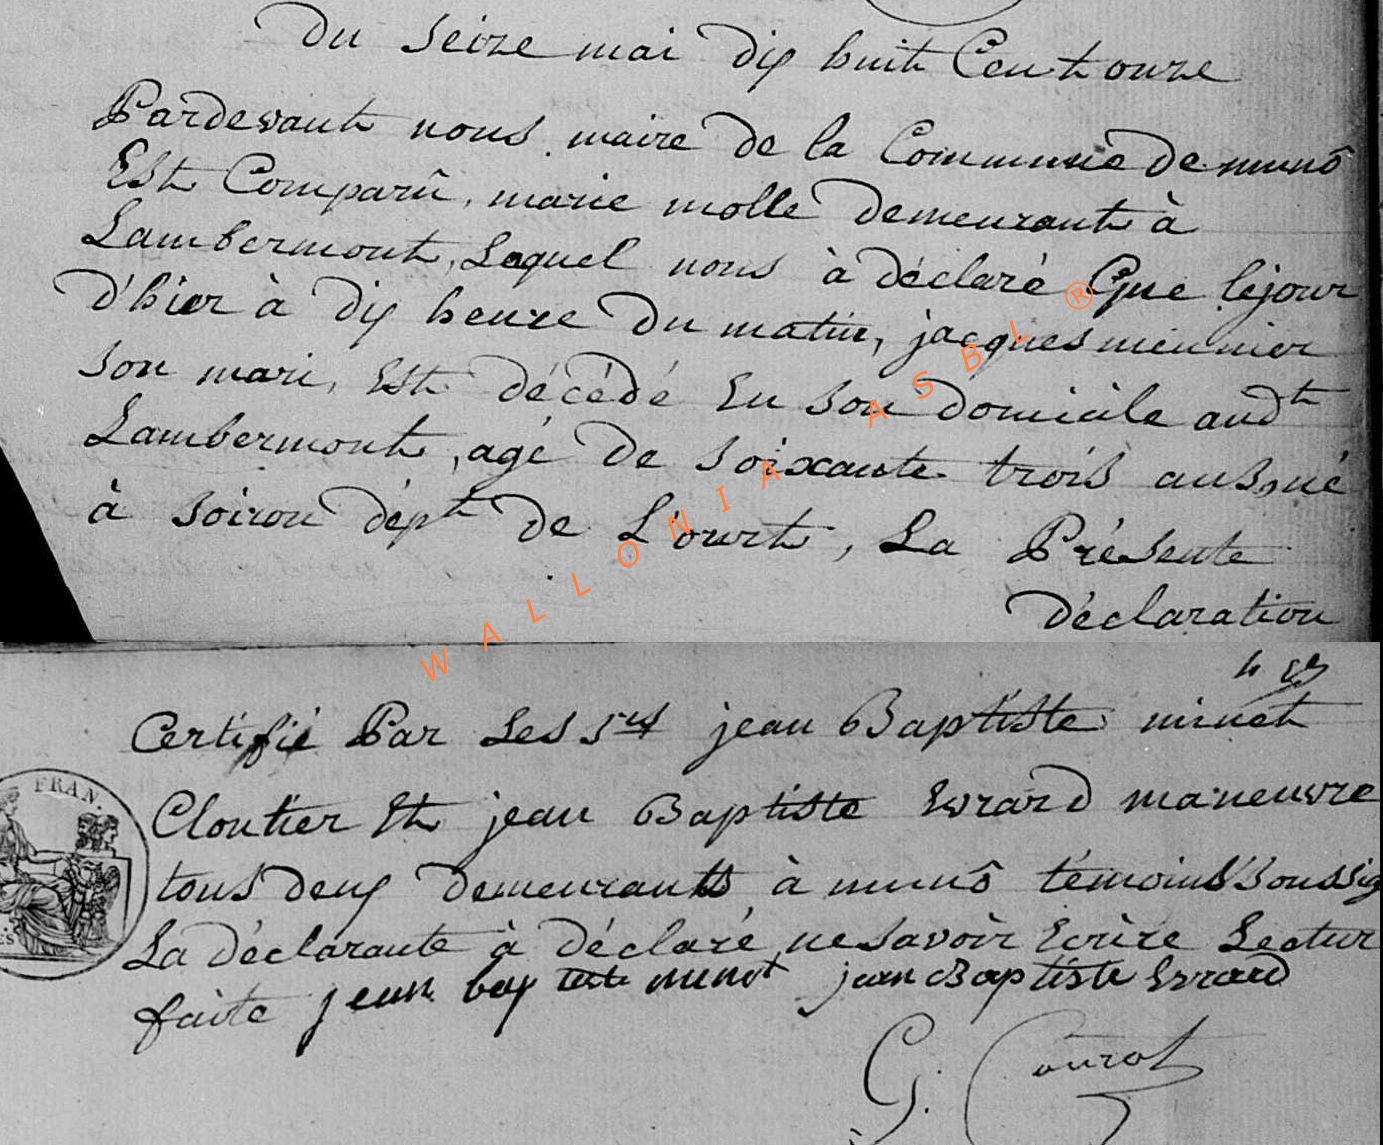 Du Seize mai dix huit Cent onze
Pardevant nous maire de la Commune de munô
Est Comparû, marie molle demeurant à
Lambermont, Laquel nous à déclaré Que le jour
d'hier à dix heure du matin, jacques meunier
Son mari, Est décédé En Son domicile audt
Lambermont, agé de soixante trois ans, né
à Soiron dépt de L'ourt, La Présente
déclaration
Certifié Par Les Srs jean Baptiste minet
Cloutier Et jean Baptiste Evrard maneuvre
tous deux demeurants à munô témoins Soussig
La déclarante à déclaré ne Savoir Ecrire Lectur
faite jean baptiste minet jean Baptiste Evrard
G. Courot
FRAN.
WALLONIA ASBL ®